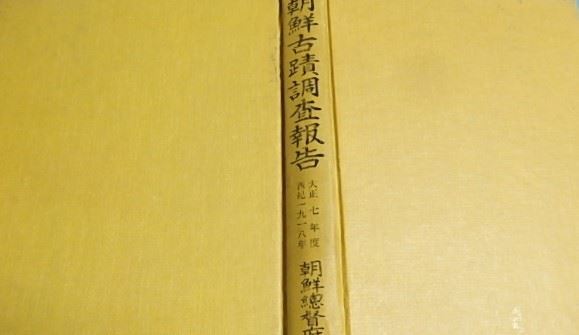 朝鮮古蹟調査報告
大正七年度
西紀一九一八年
朝鮮總督府